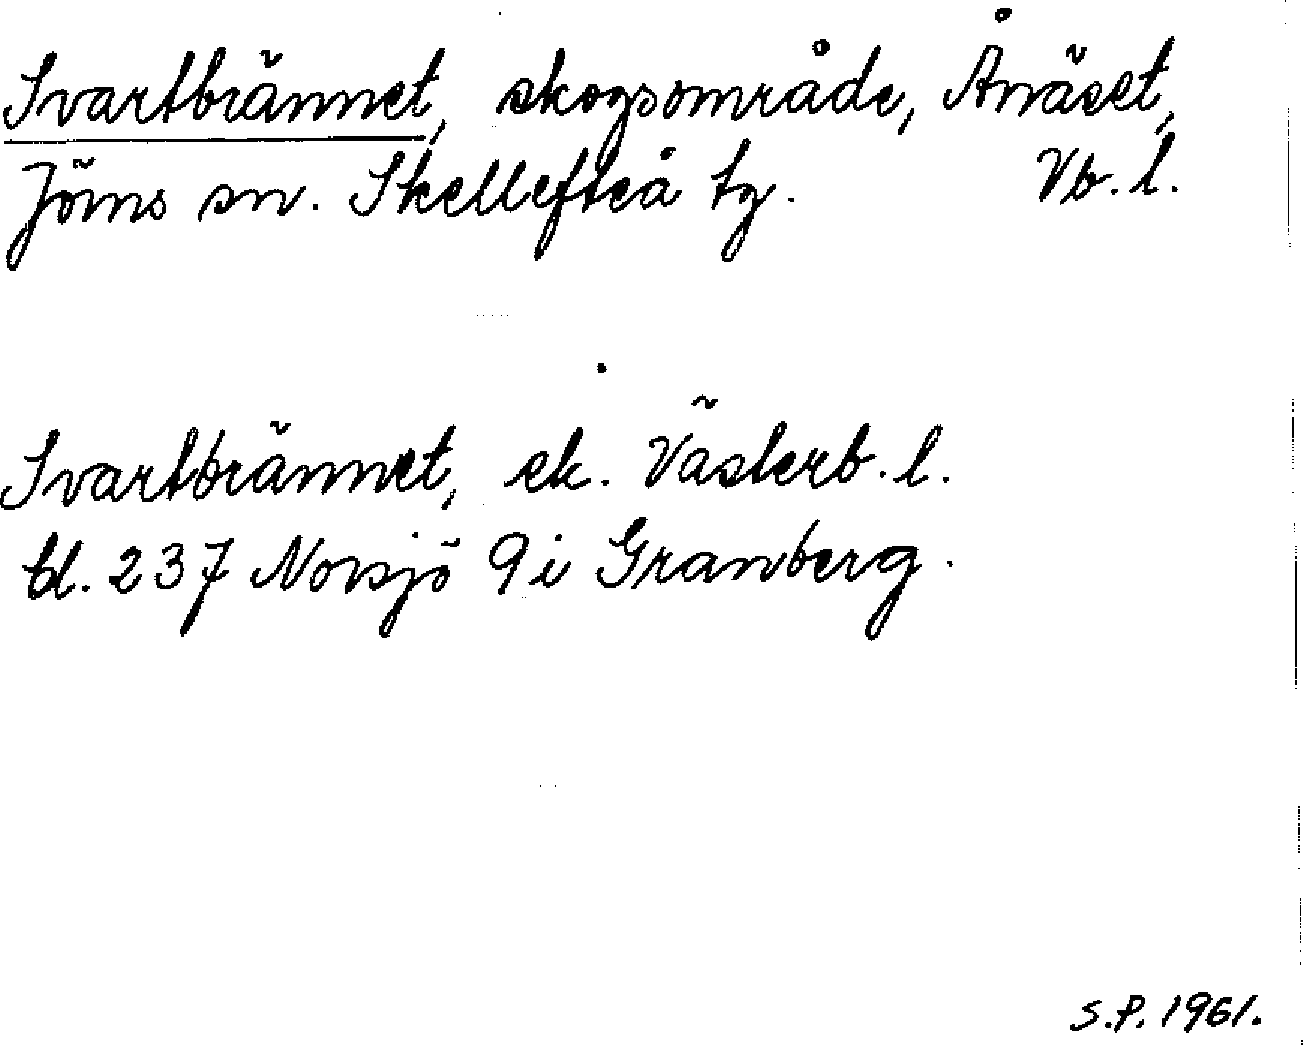 Svartbrännet, skogsområde, Ånäset,
Jörns sn. Skellefteå tg. Vb. l.
Svartbrännet, ek. Västerb. l.
bl. 237 Norsjö 9 i Granberg.
S.P. 1961.